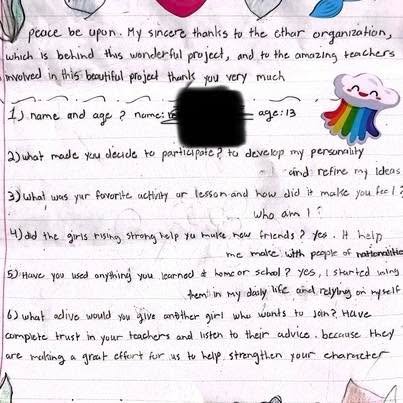 peace be upon. My sincere thanks to the ethar organization,
which is behind this wonderful project, and to the amazing teachers
involved in this beautiful project thank you very much
1) name and age ? name: age: 13
2) what made you decide to participate? to develop my personality
and refine my ideas
3) what was yur favorite activity or lesson and how did it make you feel ?
who am I ?
4) did the girls rising strong help yu make new friends ? yes . it help
me make with people of nationalitie
5) Have you used anything you learned at home or school ? yes, I started using
them in my daily life and relying on myself
6) what adive would you give another girl who wants to join ? Have
complete trust in your teachers and listen to their advice . because they
are making a great effort for us to help strengthen your character